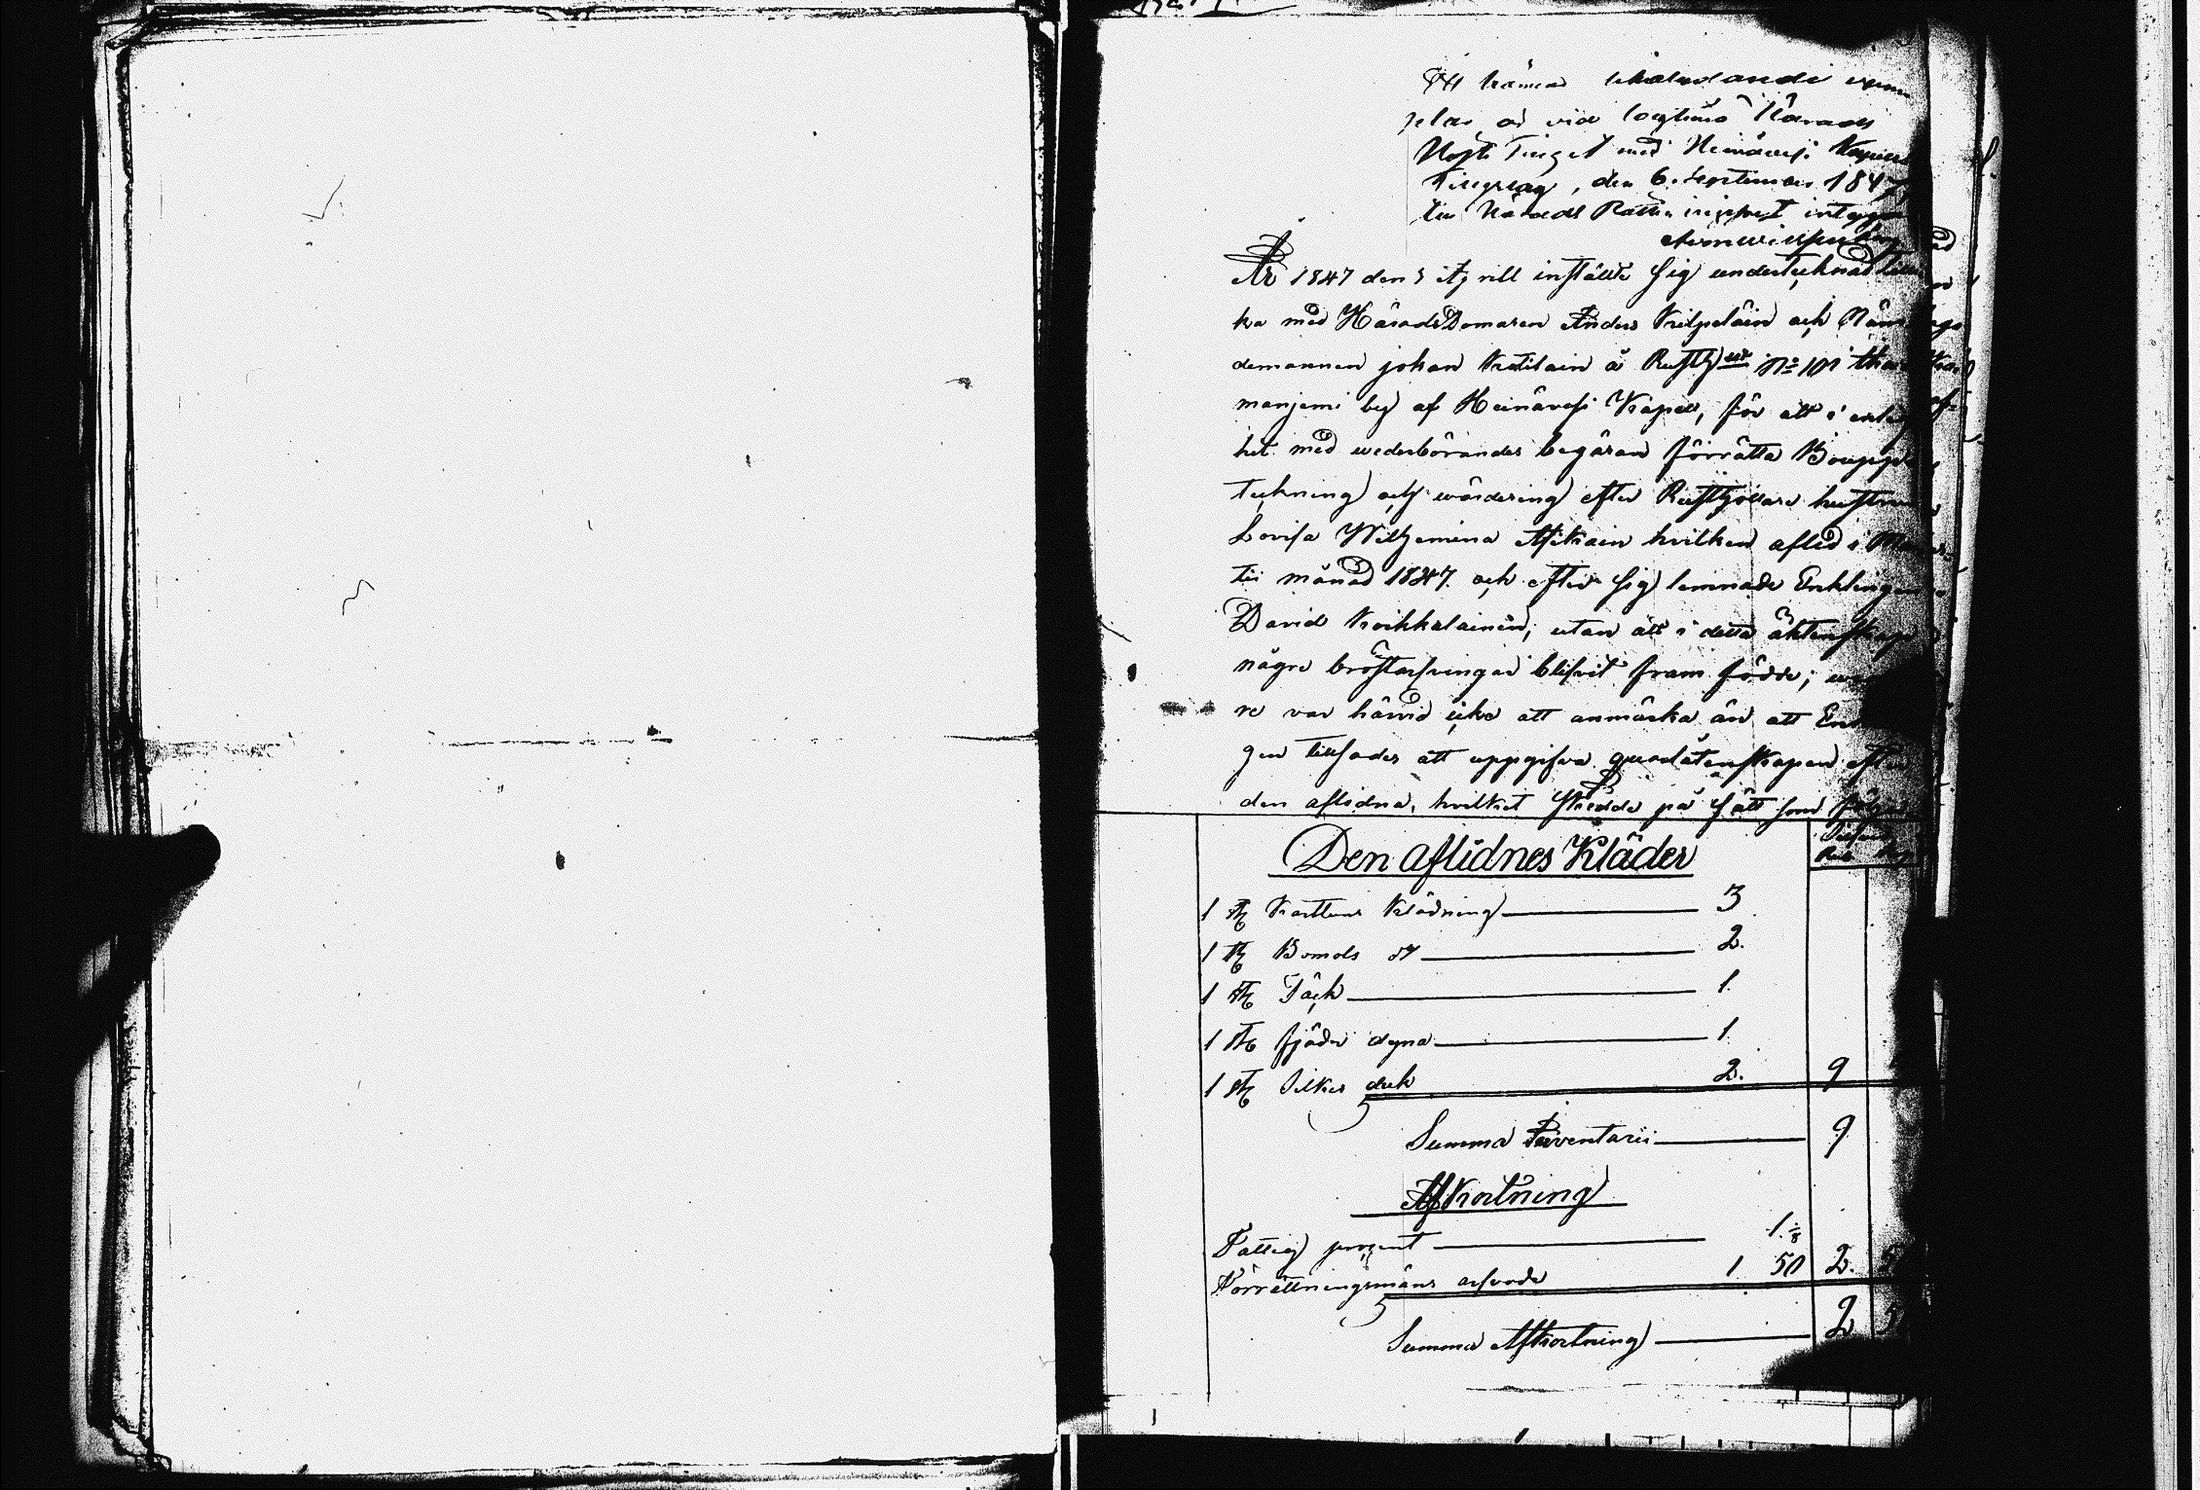 Ett härmed likalydande exem
plar är vid lagtima Härads
Höste Tinget med Heinävesi Kapells
Tingslag, den 6. September 1847,
till Härads Rätten ingifvet
År 1847 den 3 April instälte sig undertecknad
ka med HäradsDomaren Anders Kilpeläin och Näm
demannen johan Kutilain å Rusth No 101
manjemi by af Heinävesi Kapell, för att i enlig
het med wederbörandes begäran förrätta Bouppt
teckning och wärdering efter Rusthållare hustrun
Lovisa Wilhemina Asikain hvilken afled i Mar
tii månad 1847. och efter sig lemnade Enklingen
David Koikkalainen, utan att i detta äktenskap
någre bröstarfvingar blifvit fram födde; wida
re var härvid icke att anmärka än att Enk
gen tillsades att uppgifva qvarlåtenskapen efter
den aflidna, hvilket skedde på sätt som följer
Den aflidnes Kläder
1 st Kattuns Klädning 3
1 st Bomols dt 2.
1 st Täck 1.
1 st fjäder dyna 1.
1 st Silkes duk 2. 9
Summa Inventarii 9
Afkortning
Fattig procent 1.
Förrättningsmäns arfvode 1 50 2.
Summa Afkortning 2